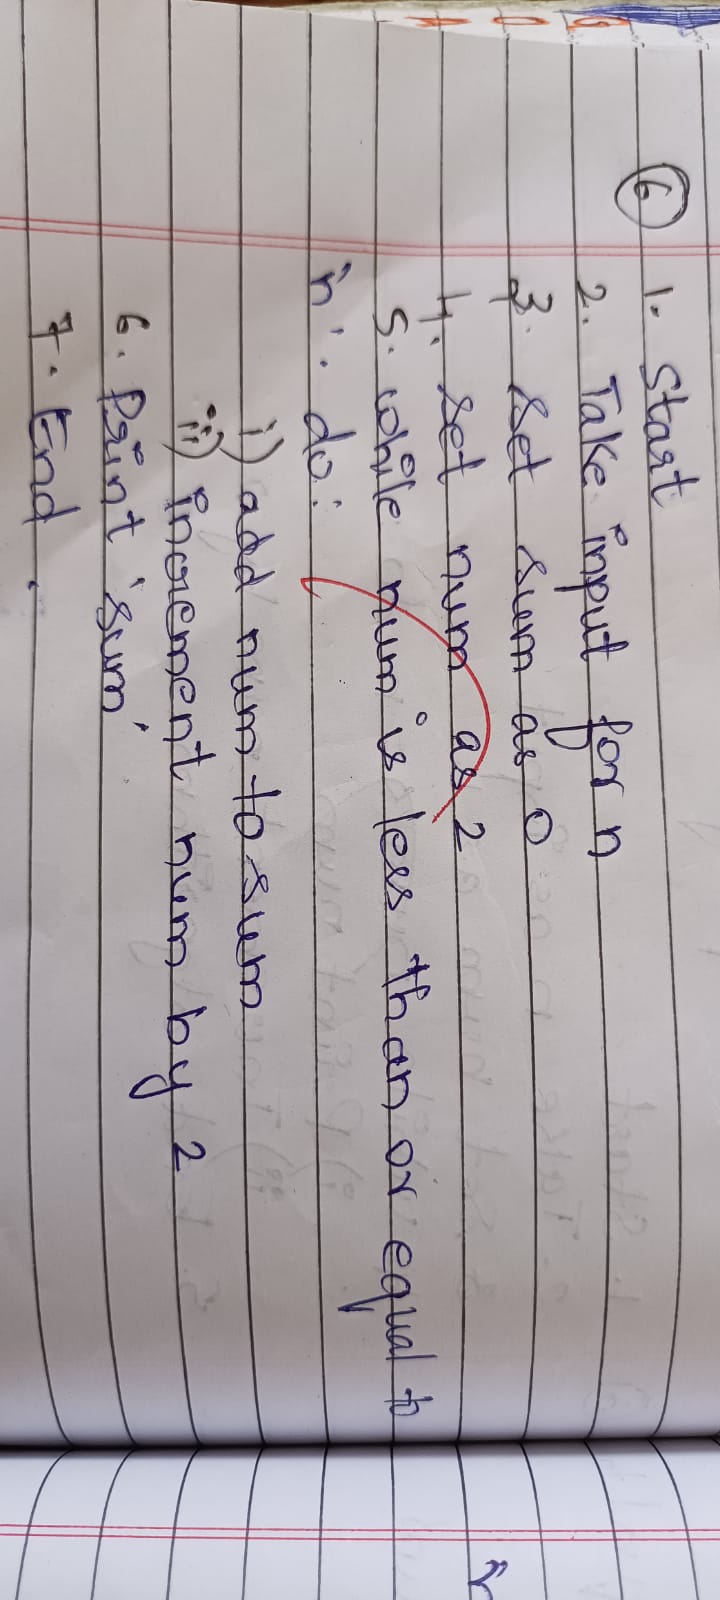 6 1. Start
2. Take input for n
3. Set sum as 0
4. Set num as 2
5. while num is less than or equal to
'n'. do:
i) add num to sum
ii) increment num by 2
6. Print 'sum'
7. End.